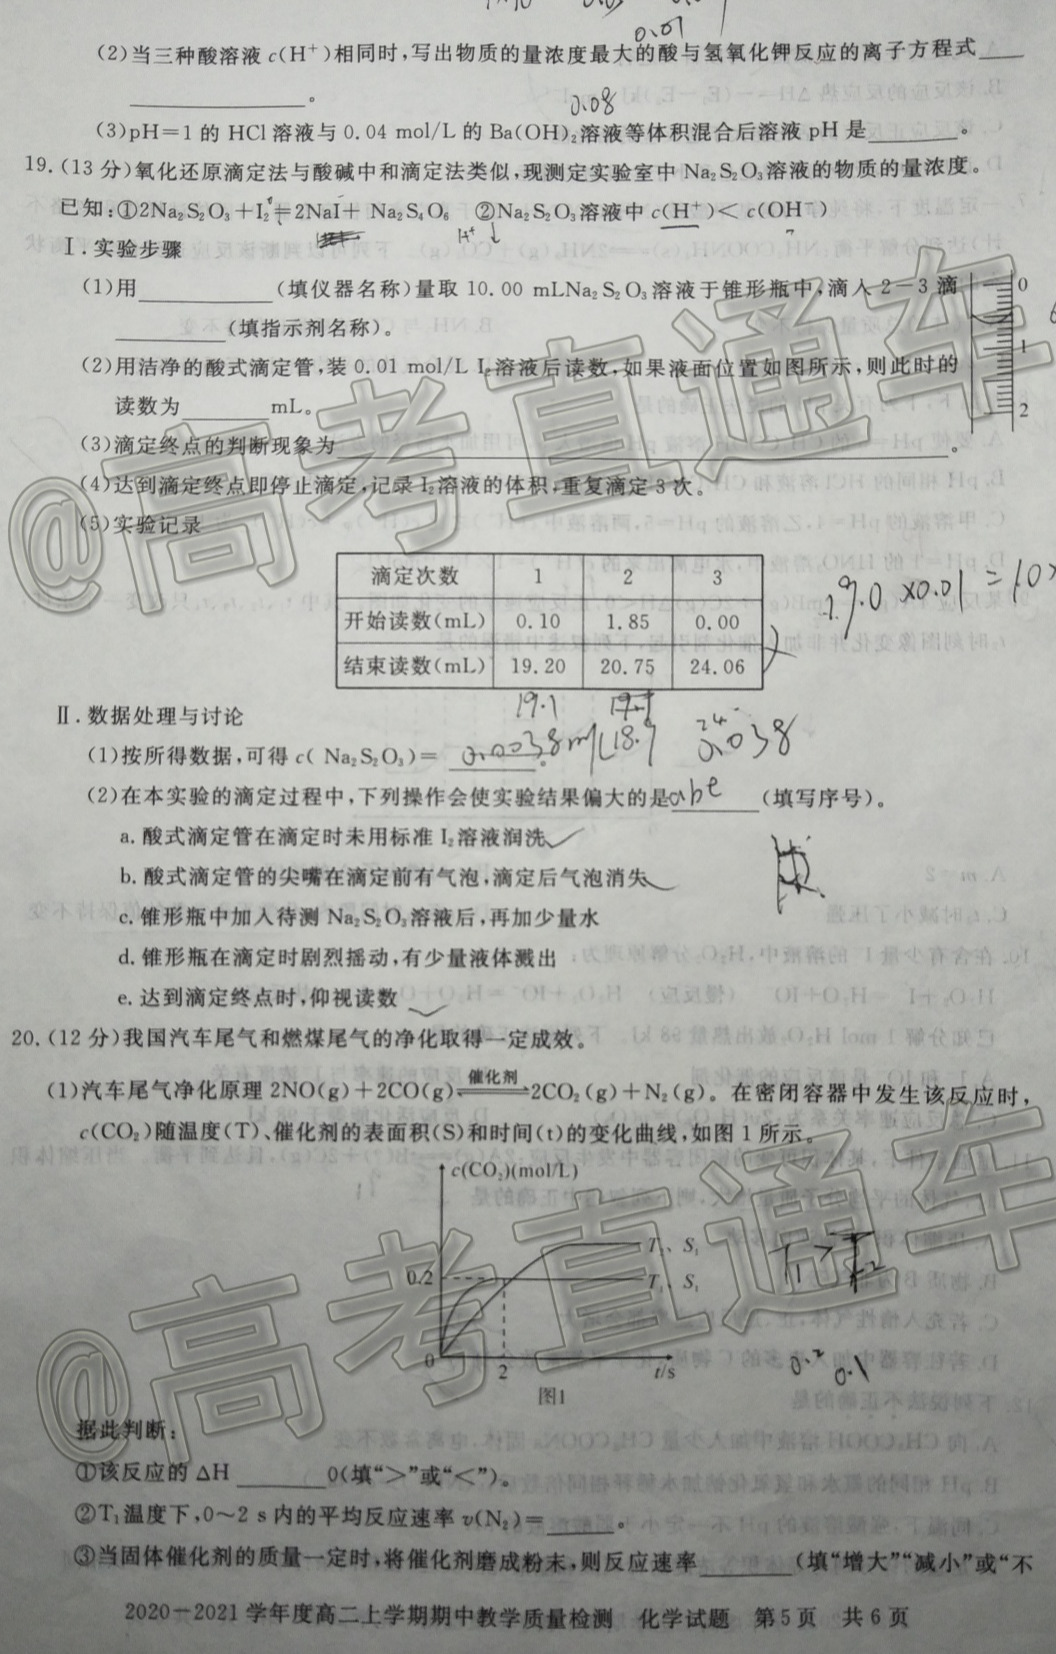 0.01
(2)当三种酸溶液 c(H⁺)相同时,写出物质的量浓度最大的酸与氢氧化钾反应的离子方程式____
____________。
0.08
(3)pH=1 的 HCl 溶液与 0.04 mol/L 的 Ba(OH)₂溶液等体积混合后溶液 pH 是______。
19.(13 分)氧化还原滴定法与酸碱中和滴定法类似,现测定实验室中 Na₂S₂O₃溶液的物质的量浓度。
已知:①2Na₂S₂O₃+I₂=2NaI+ Na₂S₄O₆ ②Na₂S₂O₃溶液中 c(H⁺)< c(OH⁻)
H⁺ ↓
Ⅰ.实验步骤
(1)用________(填仪器名称)量取 10.00 mLNa₂S₂O₃溶液于锥形瓶中,滴入 2-3 滴
________(填指示剂名称)。
(2)用洁净的酸式滴定管,装 0.01 mol/L I₂溶液后读数,如果液面位置如图所示,则此时的
读数为______mL。
0
1
2
(3)滴定终点的判断现象为________________________________________。
(4)达到滴定终点即停止滴定,记录 I₂溶液的体积,重复滴定 3 次。
(5)实验记录
滴定次数 1 2 3
开始读数(mL) 0.10 1.85 0.00
结束读数(mL) 19.20 20.75 24.06
19.0 ×0.01 = 10×
19.1
18.9
Ⅱ.数据处理与讨论
(1)按所得数据,可得 c( Na₂S₂O₃)= ______。
0.038
(2)在本实验的滴定过程中,下列操作会使实验结果偏大的是abe______(填写序号)。
a. 酸式滴定管在滴定时未用标准 I₂溶液润洗
b. 酸式滴定管的尖嘴在滴定前有气泡,滴定后气泡消失
c. 锥形瓶中加入待测 Na₂S₂O₃溶液后,再加少量水
d. 锥形瓶在滴定时剧烈摇动,有少量液体溅出
e. 达到滴定终点时,仰视读数
20.(12 分)我国汽车尾气和燃煤尾气的净化取得一定成效。
(1)汽车尾气净化原理 2NO(g)+2CO(g)⇌催化剂 2CO₂(g)+N₂(g)。在密闭容器中发生该反应时,
c(CO₂)随温度(T)、催化剂的表面积(S)和时间(t)的变化曲线,如图 1 所示。
c(CO₂)(mol/L)
T₂、S₁
T₁>T₂
0.2
T₁、S₁
0
2
t/s
0.2 0.1
图1
据此判断:
①该反应的 ΔH ______0(填“>”或“<”)。
②T₁温度下,0～2 s 内的平均反应速率 v(N₂)=______。
③当固体催化剂的质量一定时,将催化剂磨成粉末,则反应速率______(填“增大”“减小”或“不
2020-2021 学年度高二上学期期中教学质量检测 化学试题 第 5 页 共 6 页
@高考直通车
@高考直通车